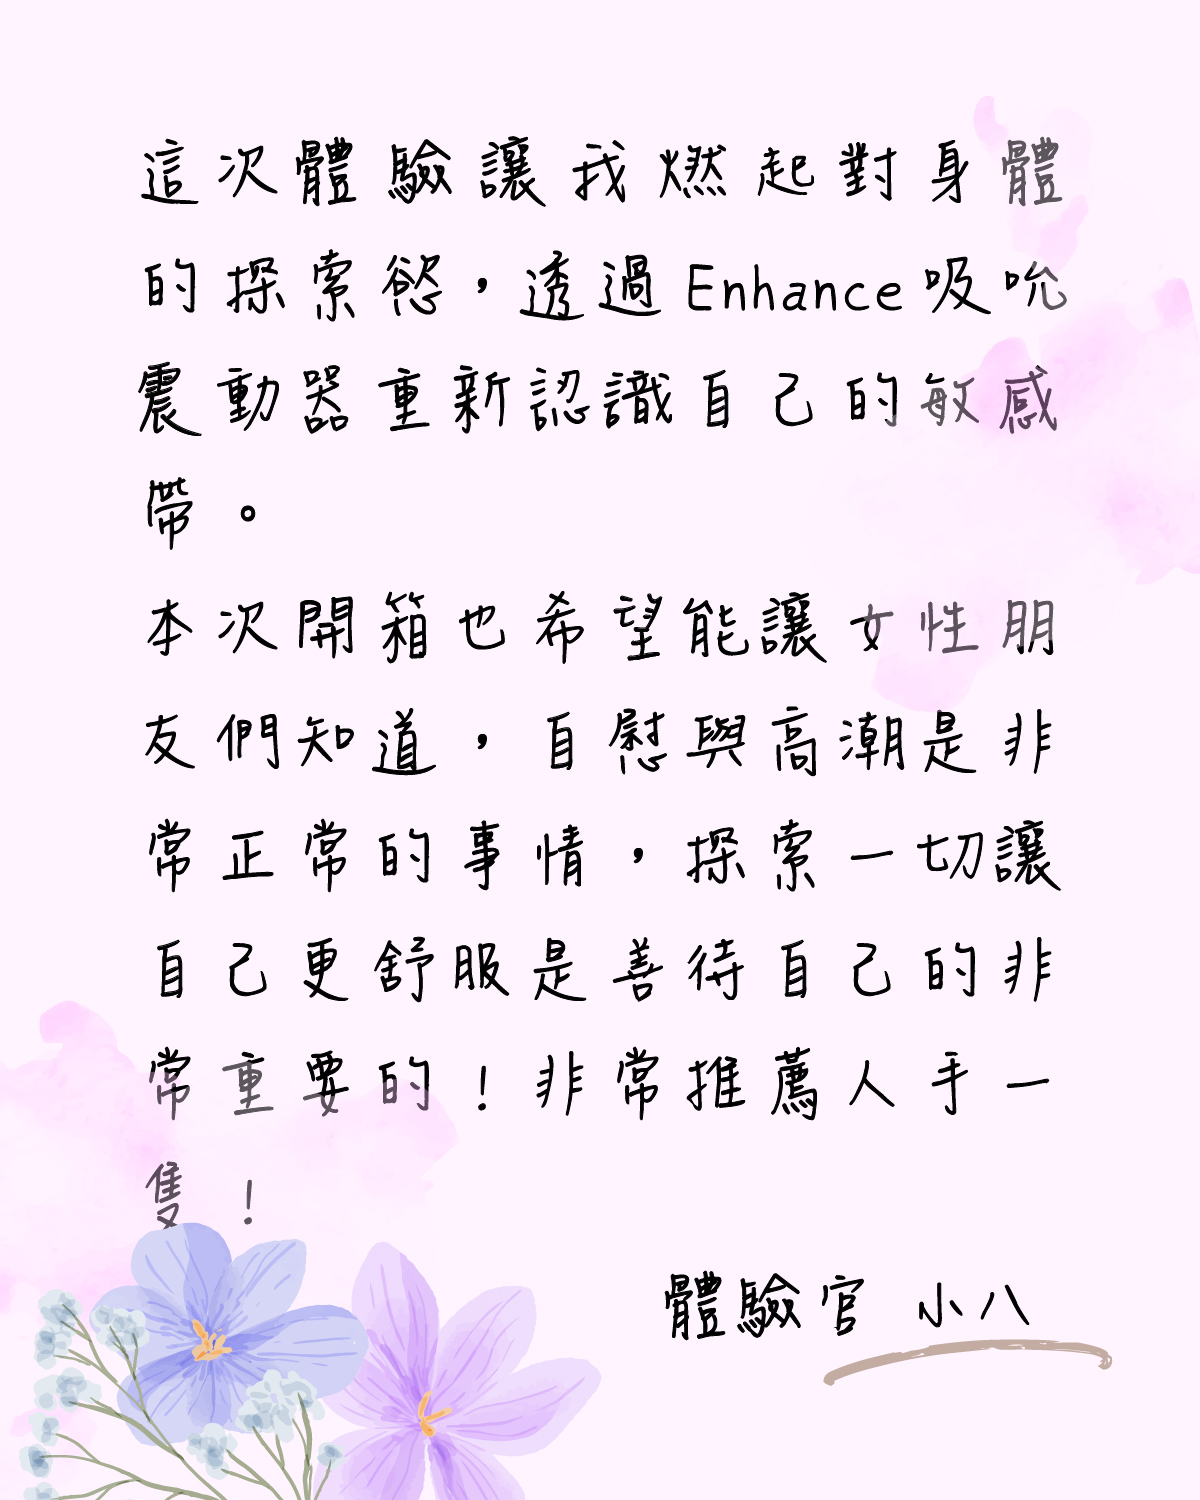 這次體驗讓我燃起對身體
的探索慾，透過Enhance吸吮
震動器重新認識自己的敏感
帶。
本次開箱也希望能讓女性朋
友們知道，自慰與高潮是非
常正常的事情，探索一切讓
自己更舒服是善待自己的非
常重要的！非常推薦人手一
隻！
體驗官 小八